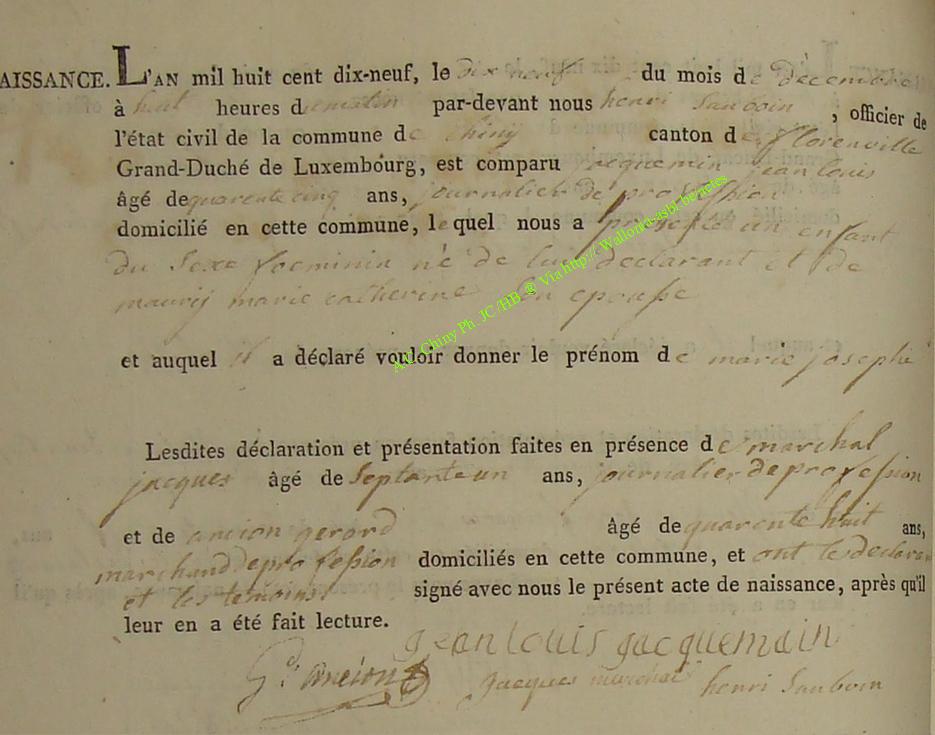 AISSANCE. L'AN mil huit cent dix-neuf, le dix neuf du mois de decembre
à huit heures du matin par-devant nous henri Sauboin, officier de
l'état civil de la commune de Chiny canton de florenville
Grand-Duché de Luxembourg, est comparu jacquemin jean louis
âgé de quarente cinq ans, journalier de profession
domicilié en cette commune, lequel nous a presenté un enfant
du Sexe foeminin né de lui declarant et de
maury marie catherine Son epouse
et auquel il a déclaré vouloir donner le prénom de marie josephe
Lesdites déclaration et présentation faites en présence de marchal
jacques âgé de Septante un ans, journalier de profession
et de ancion gerard âgé de quarente huit ans,
marchand de profession domiciliés en cette commune, et ont les declarant
et les temoins signé avec nous le présent acte de naissance, après qu'il
leur en a été fait lecture.
jean louis jacquemain
Gd. ancion jacques merchal henri Sauboin
Chiny Ph. JC /HB @ Via http:// Wallonia-asbl